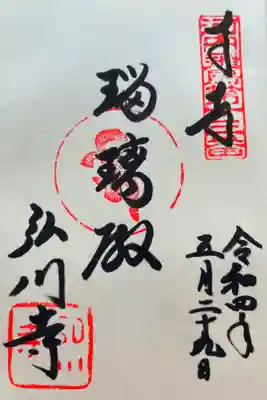 本寺
令和四年
五月二十九日
瑠璃殿
弘川寺